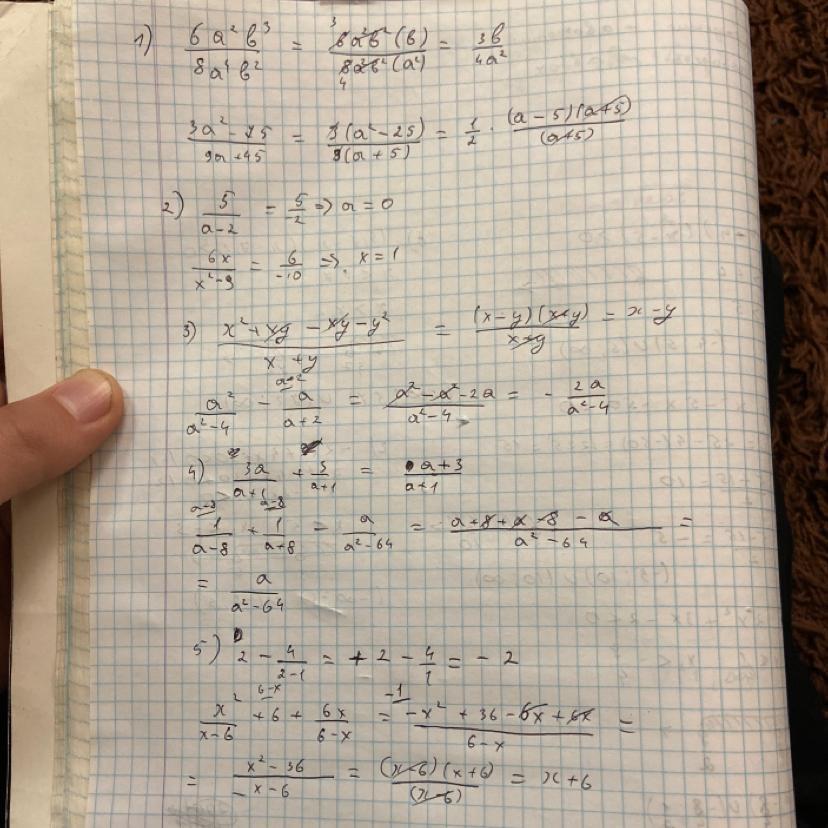 1) 6a²b³/8a⁴b² = 6a²b²(b)/8a²b²(a²) = 3b/4a²
3a²-75/9a+45 = 3(a²-25)/9(a+5) = 1/2 · (a-5)(a+5)/(a+5)
2) 5/a-2 = 5/-2 => a=0
6x/x²-9 = 6/-10 => x=1
3) x²+xy-xy-y²/x+y = (x-y)(x+y)/x+y = x-y
a²/a²-4 - a/a+2 = a²-a²-2a/a²-4 = - 2a/a²-4
4) 3a/a+1 + 3/a+1 = a+3/a+1
1/a-8 + 1/a+8 - a/a²-64 = a+8+a-8-a/a²-64 =
= a/a²-64
5) 2 - 4/2-1 = +2 - 4/1 = -2
x²/x-6 + 6 + 6x/6-x = -x²+36-6x+6x/6-x =
= x²-36/x-6 = (x-6)(x+6)/(x-6) = x+6